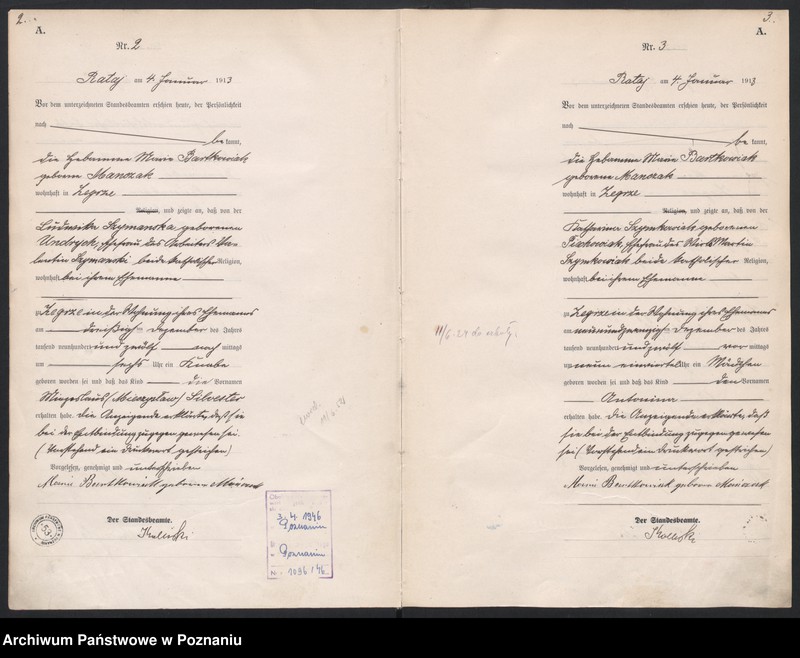 2.
A.
Nr. 2
Rataj am 4. Januar 1913
Vor dem unterzeichneten Standesbeamten erschien heute, der Persönlichkeit
nach
be kannt,
die Hebamme Marie Bartkowiak
geborene Manczak
wohnhaft in Zegrze
Religion, und zeigte an, daß von der
Ludwika Szymanska geborenen
Ehefrau des Arbeiters Va-
lentin Szymanski beide katholischer Religion,
wohnhaft bei ihrem Ehemanne
zu Zegrze in der Wohnung ihres Ehemannes
am dreißigsten Dezember des Jahres
tausend neunhundert und zwölf nach mittags
um sechs Uhr ein Knabe
geboren worden sei und daß das Kind die Vornamen
(Mieczyslaw) Silvester
erhalten habe. Die Anzeigende erklärte, daß sie
bei der Entbindung zugegen gewesen sei.
(Vorstehend ein Druckwort gestrichen)
Vorgelesen, genehmigt und unterschrieben
Marie Bartkowiak geborene Manczak
Der Standesbeamte.
3. 4. 1946
Poznaniu
Poznaniu
1096/46
3.
A.
Nr. 3
Rataj am 4. Januar 1913
Vor dem unterzeichneten Standesbeamten erschien heute, der Persönlichkeit
nach
be kannt,
die Hebamme Marie Bartkowiak
geborene Manczak
wohnhaft in Zegrze
Religion, und zeigte an, daß von der
Katharina Szymkowiak geborenen
Piaskowiak, Ehefrau des Wirts Martin
Szymkowiak beide katholischer Religion,
wohnhaft bei ihrem Ehemanne
zu Zegrze in der Wohnung ihres Ehemannes
am neunundzwanzigsten Dezember des Jahres
tausend neunhundert und zwölf vor mittags
um neun einviertel Uhr ein Mädchen
geboren worden sei und daß das Kind den Vornamen
Antonina
erhalten habe. Die Anzeigende erklärte, daß
sie bei der Entbindung zugegen gewesen
sei (Vorstehend ein Druckwort gestrichen)
Vorgelesen, genehmigt und unterschrieben
Marie Bartkowiak geborene Manczak
Der Standesbeamte.
Archiwum Państwowe w Poznaniu